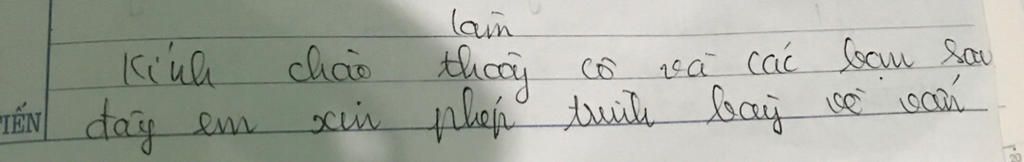 làm
Kính chào thầy cô và các bạn sau
TIẾN đây em xin phép trình bày về vấn